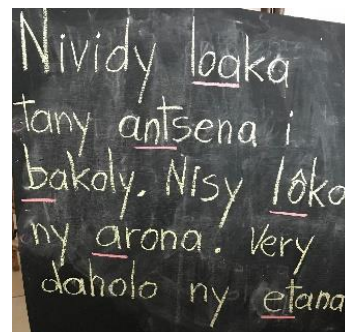 Nividy loaka
tany antsena i
bakoly. Nisy lôko
ny arona. Very
daholo ny etana